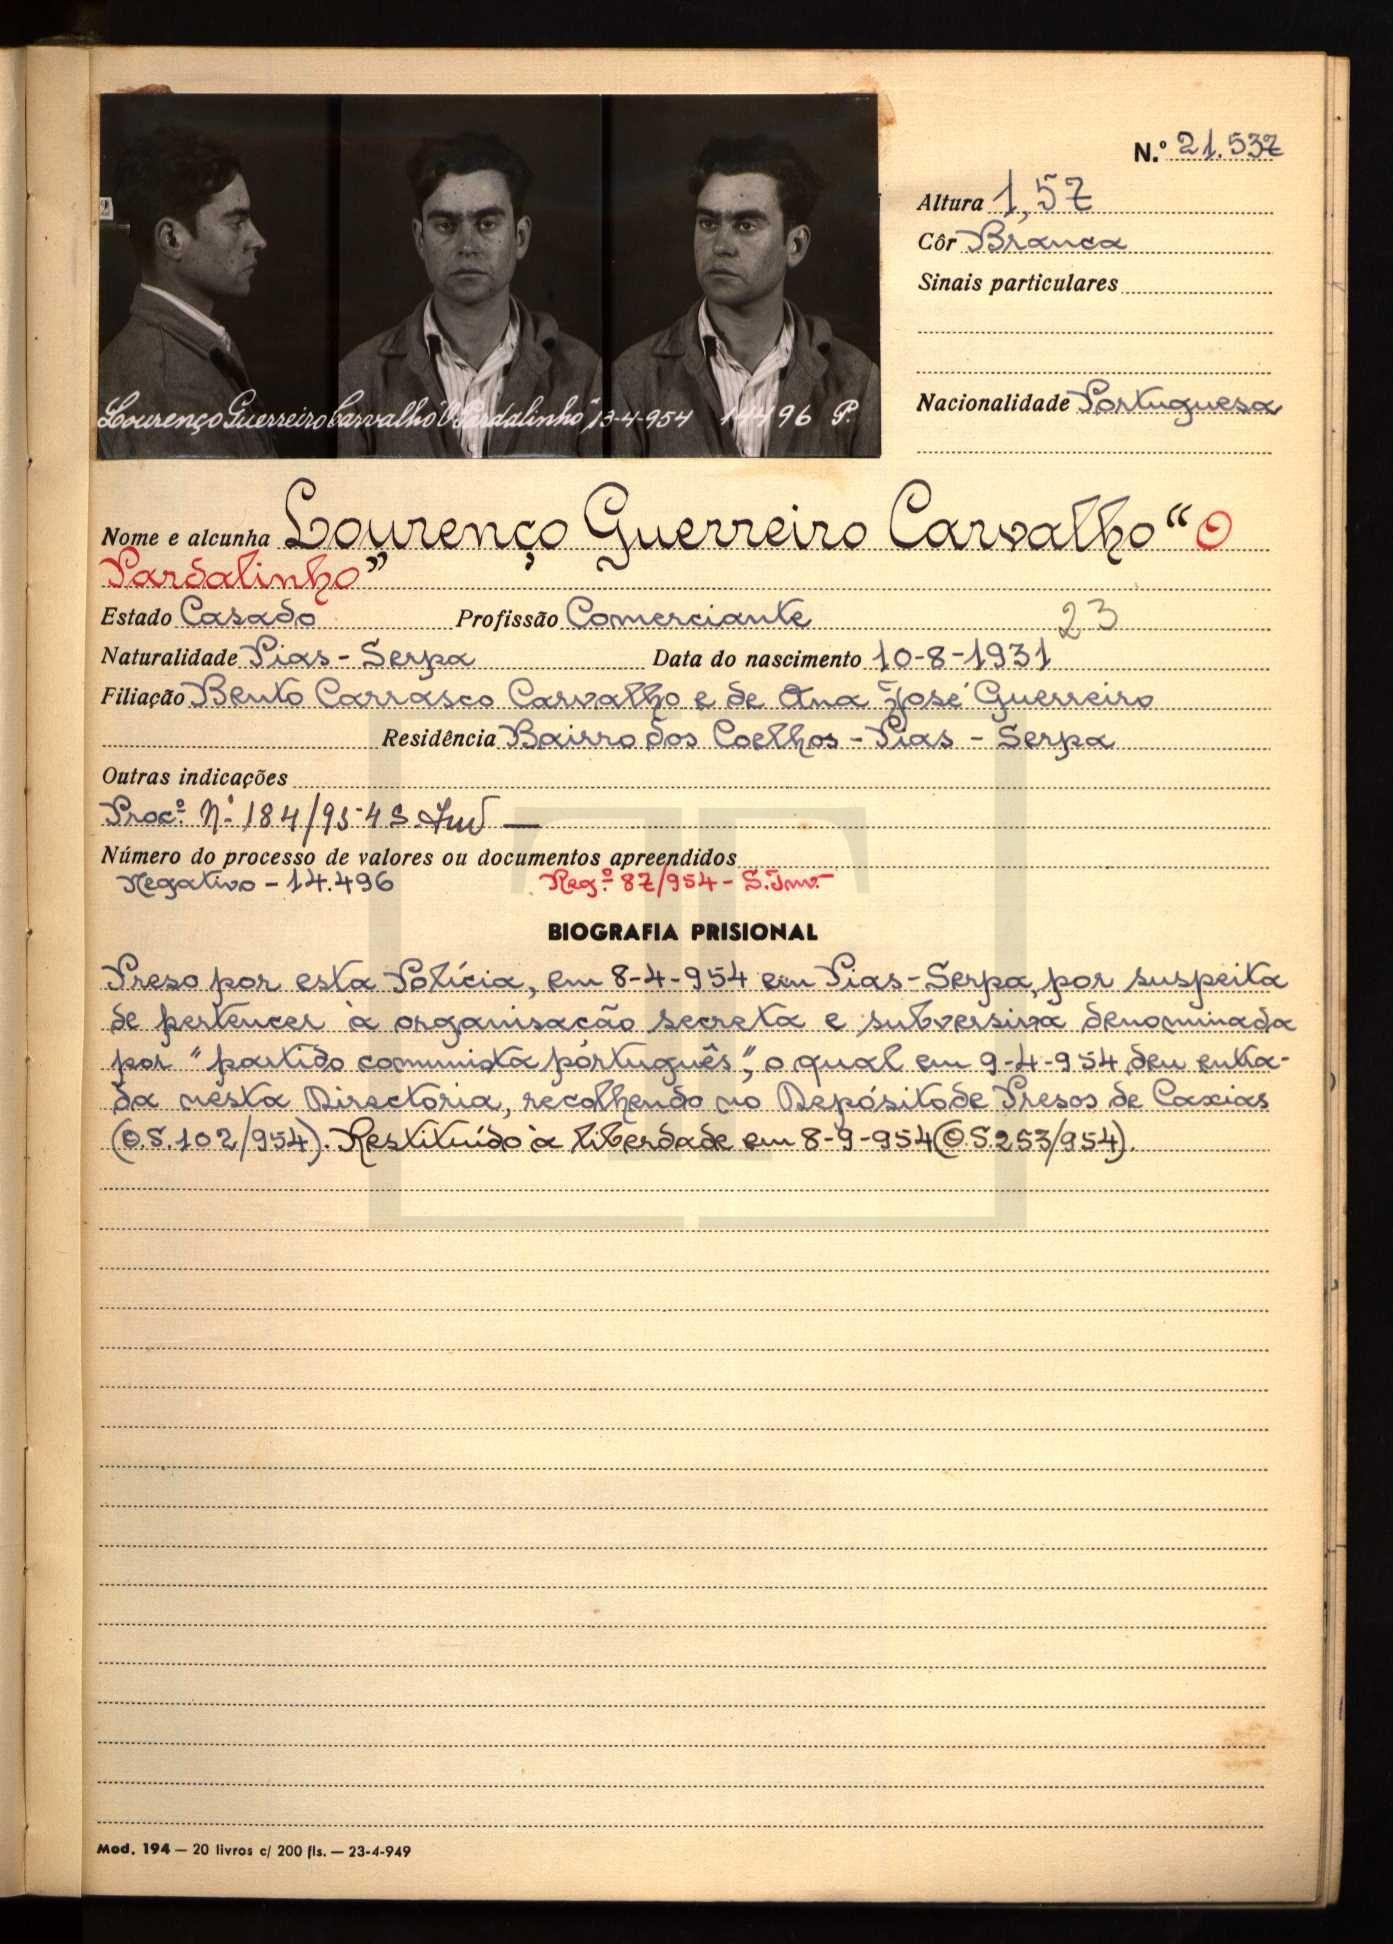 N.º 21.537
Altura 1,57
Côr Branca
Sinais particulares
Nacionalidade Portuguesa
2
Lourenço Guerreiro Carvalho "O Pardalinho" 13-4-954 14496 P.
Nome e alcunha Lourenço Guerreiro Carvalho "O
Pardalinho"
Estado Casado Profissão Comerciante 23
Naturalidade Pias - Serpa Data do nascimento 10-8-1931
Filiação Bento Carrasco Carvalho e de Ana José Guerreiro
Residência Bairro dos Coelhos - Pias - Serpa
Outras indicações
Procº. Nº. 184/954 S.
Número do processo de valores ou documentos apreendidos
Negativo - 14.496 Regº. 87/954 - S.Inv.-
BIOGRAFIA PRISIONAL
Preso por esta Polícia, em 8-4-954 em Pias-Serpa, por suspeita
de pertencer à organisação secreta e subversiva denominada
por "partido comunista português", o qual em 9-4-954 deu entra-
da nesta Directoria, recolhendo no Depósito de Presos de Caxias
(O.S.102/954). Restituído à liberdade em 8-9-954 (O.S.253/954).
Mod. 194 — 20 livros c/ 200 fls. — 23-4-949